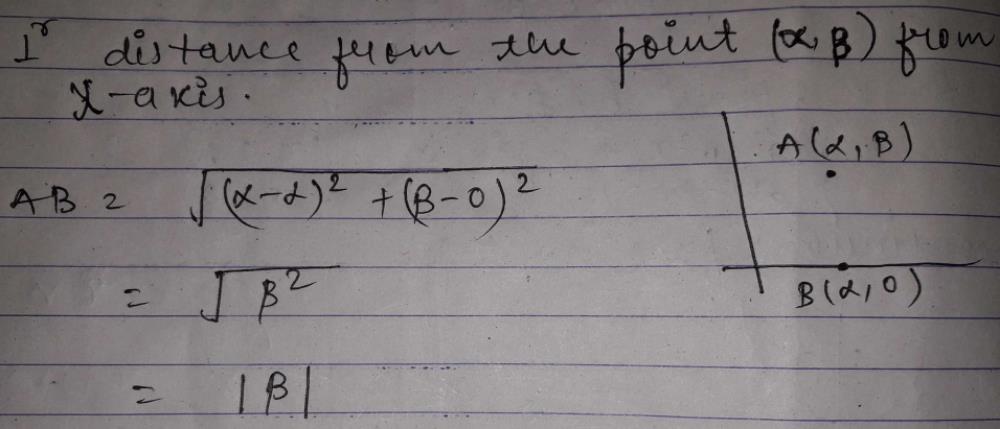 ⊥r distance from the point (α, β) from
x-axis.
A(α, β)
AB = √(α-α)² + (β-0)²
= √β²
B(α, 0)
= |β|